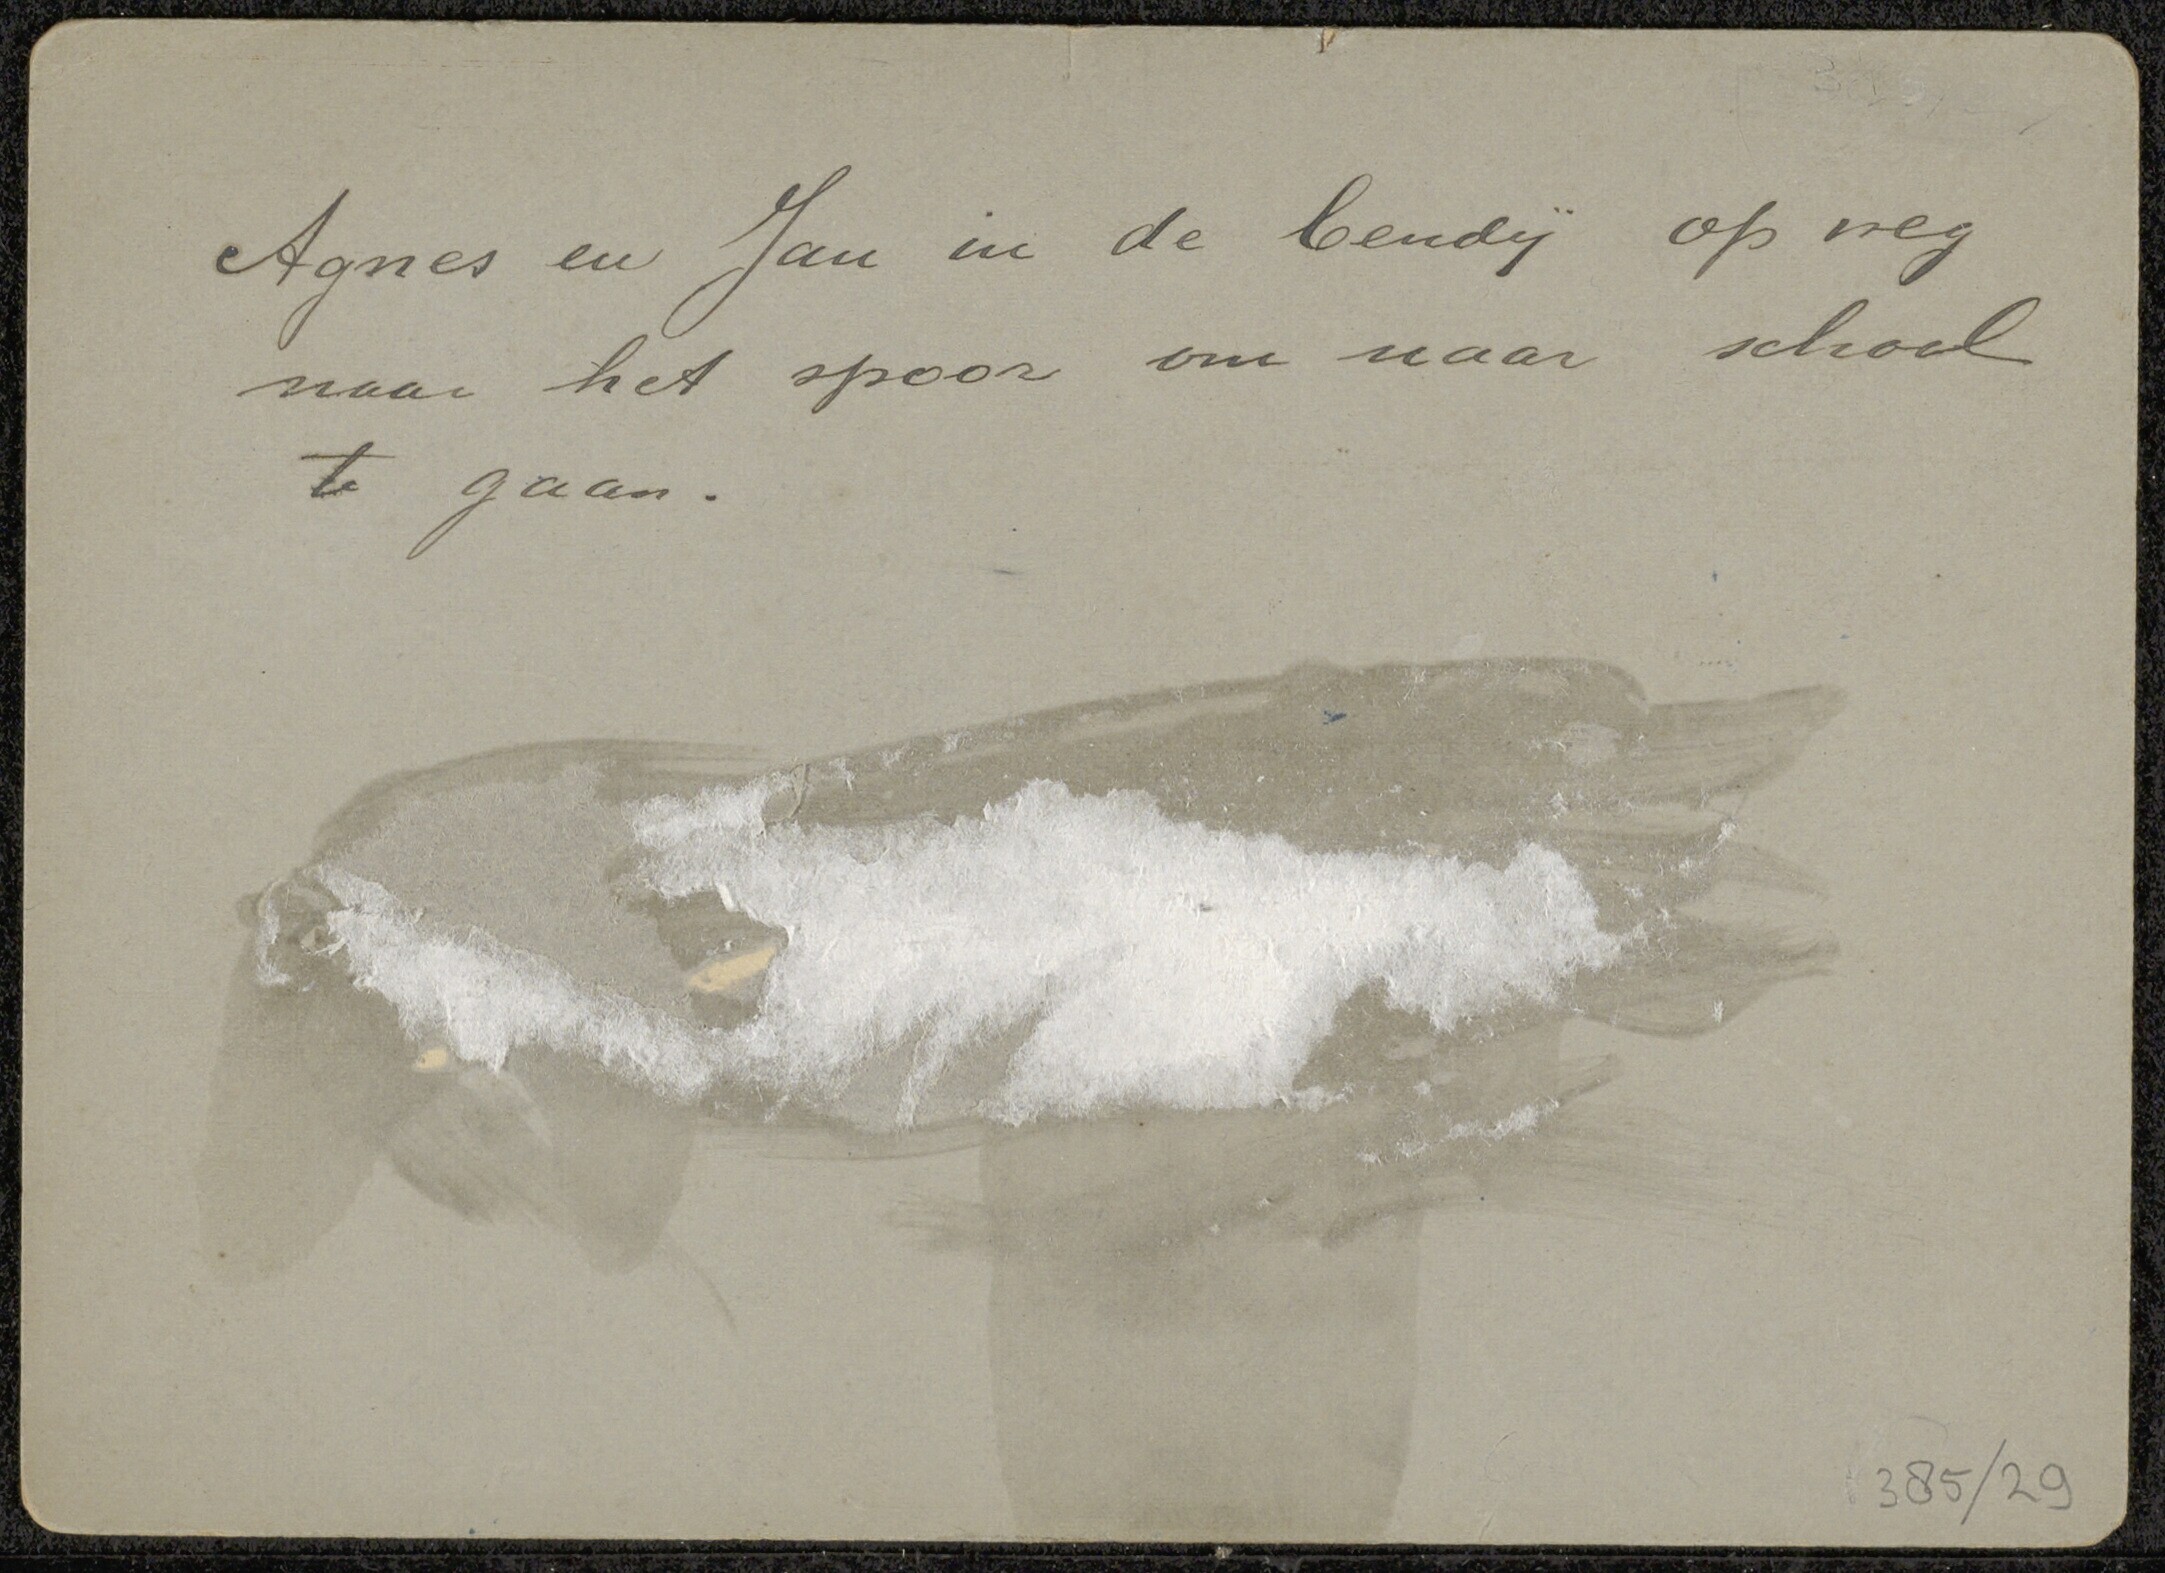 Agnes en Jan in de bendÿ op weg
naar het spoor om naar school
te gaan.
385/29